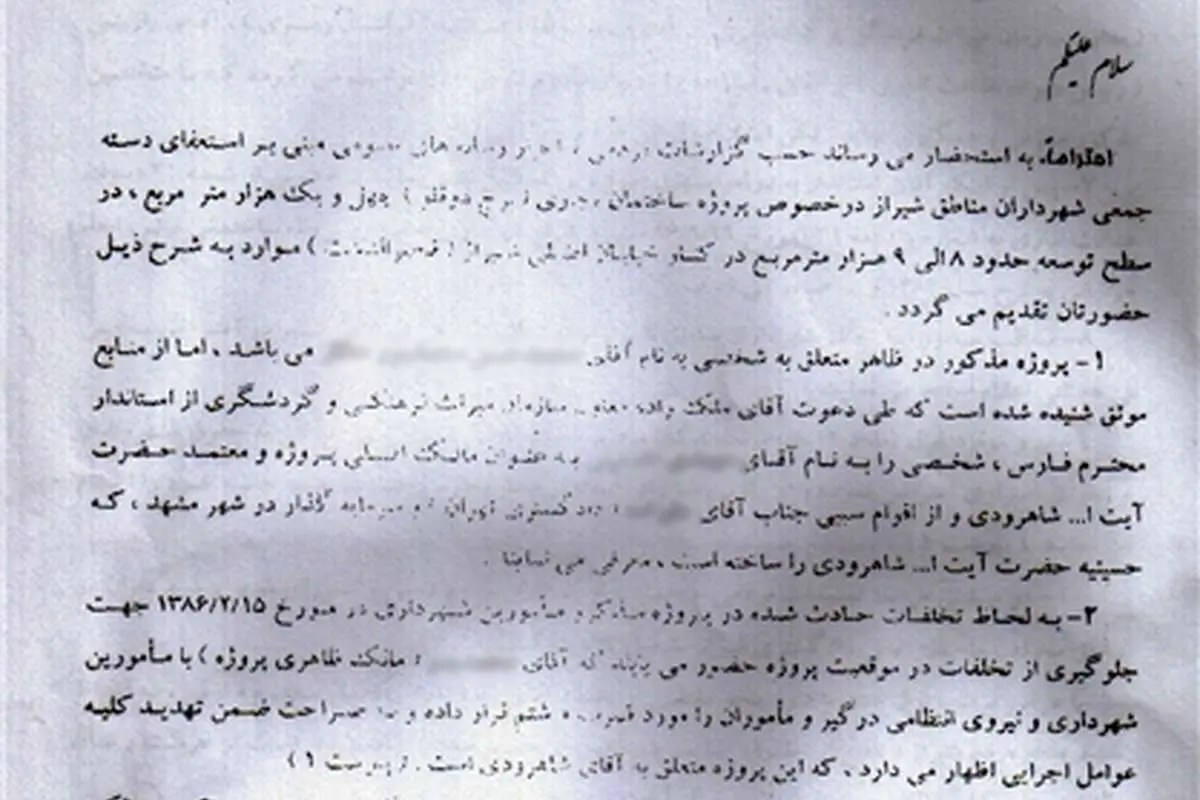 سلام علیکم
احتراماً، به استحضار می رساند حسب گزارشات مبنی بر استعفای دسته
جمعی شهرداران مناطق شیراز درخصوص پروژه ساختمان و یک هزار متر مربع ، در
سطح توسعه حدود ۸ الی ۹ هزار مترمربع در ) موارد به شرح ذیل
حضورتان تقدیم می گردد .
۱- پروژه مذکور در ظاهر متعلق به شخصی به نام آقای می باشد ، اما از منابع
موثق شنیده شده است که طی دعوت آقای ملک زاده معاون سازمان میراث فرهنگی و گردشگری از استاندار
محترم فارس ، شخصی را به نام آقای به عنوان مالک اصلی پروژه و معتمد حضرت
آیت ا... شاهرودی و از اقوام سببی جناب آقای دادگستری تهران و سرمایه گذار در شهر مشهد ، که
حسینیه حضرت آیت ا... شاهرودی را ساخته است ، معرفی می نماید .
۲- به لحاظ تخلفات حادث شده در پروژه مذکور مأمورین شهرداری در مورخ ۱۳۸۶/۲/۱۵ جهت
جلوگیری از تخلفات در موقعیت پروژه حضور می یابند که آقای ( مالک ظاهری پروژه ) با مأمورین
شهرداری و نیروی انتظامی درگیر و مأموران را مورد ضرب و شتم قرار داده و به صراحت ضمن تهدید کلیه
عوامل اجرایی اظهار می دارد ، که این پروژه متعلق به آقای شاهرودی است . ( پیوست ۱ )